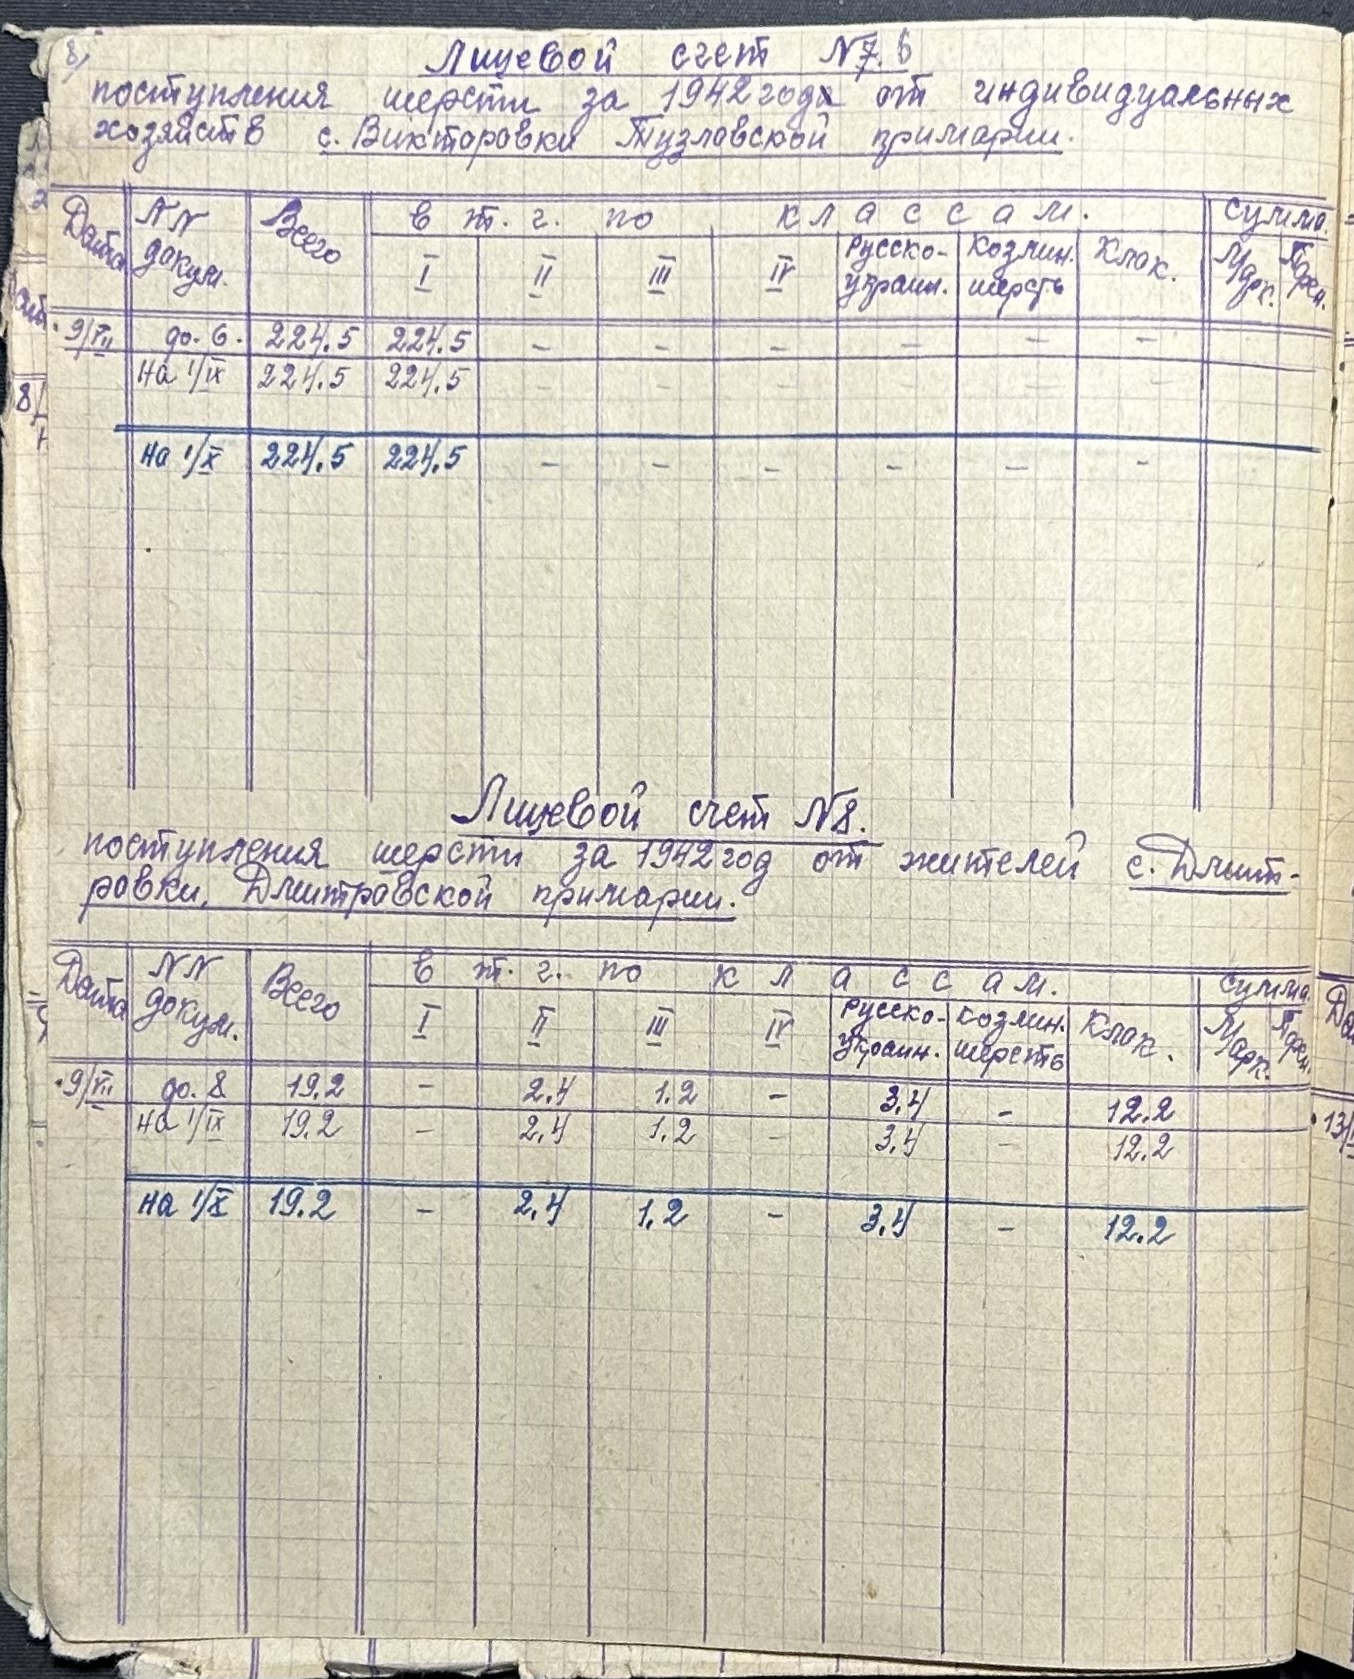 8)
Лицевой счет N 7. 6
поступления шерсти за 1942 года от индивидуальных
хозяйств с. Викторовки Тузловской примарии.
Дата NN докум. Всего в т. г. по классам. сумма.
I II III IV Русско-украин. Козлин. шерсть Клок. Марк. Пфен.
9/VII до. 6. 224.5 224.5 – – – – – –
на 1/IX 224.5 224.5 – – – – – –
на 1/X 224.5 224.5 – – – – – –
Лицевой счет N 8.
поступления шерсти за 1942 год от жителей с. Дмит-
ровки, Дмитровской примарии.
Дата NN докум. Всего в т. г. по классам. сумма.
I II III IV Русско-украин. Козлин. шерсть Клок. Марк. Пфен.
9/VII до. 8 19.2 – 2.4 1.2 – 3.4 – 12.2
на 1/IX 19.2 – 2.4 1.2 – 3.4 – 12.2
на 1/X 19.2 – 2.4 1.2 – 3.4 – 12.2